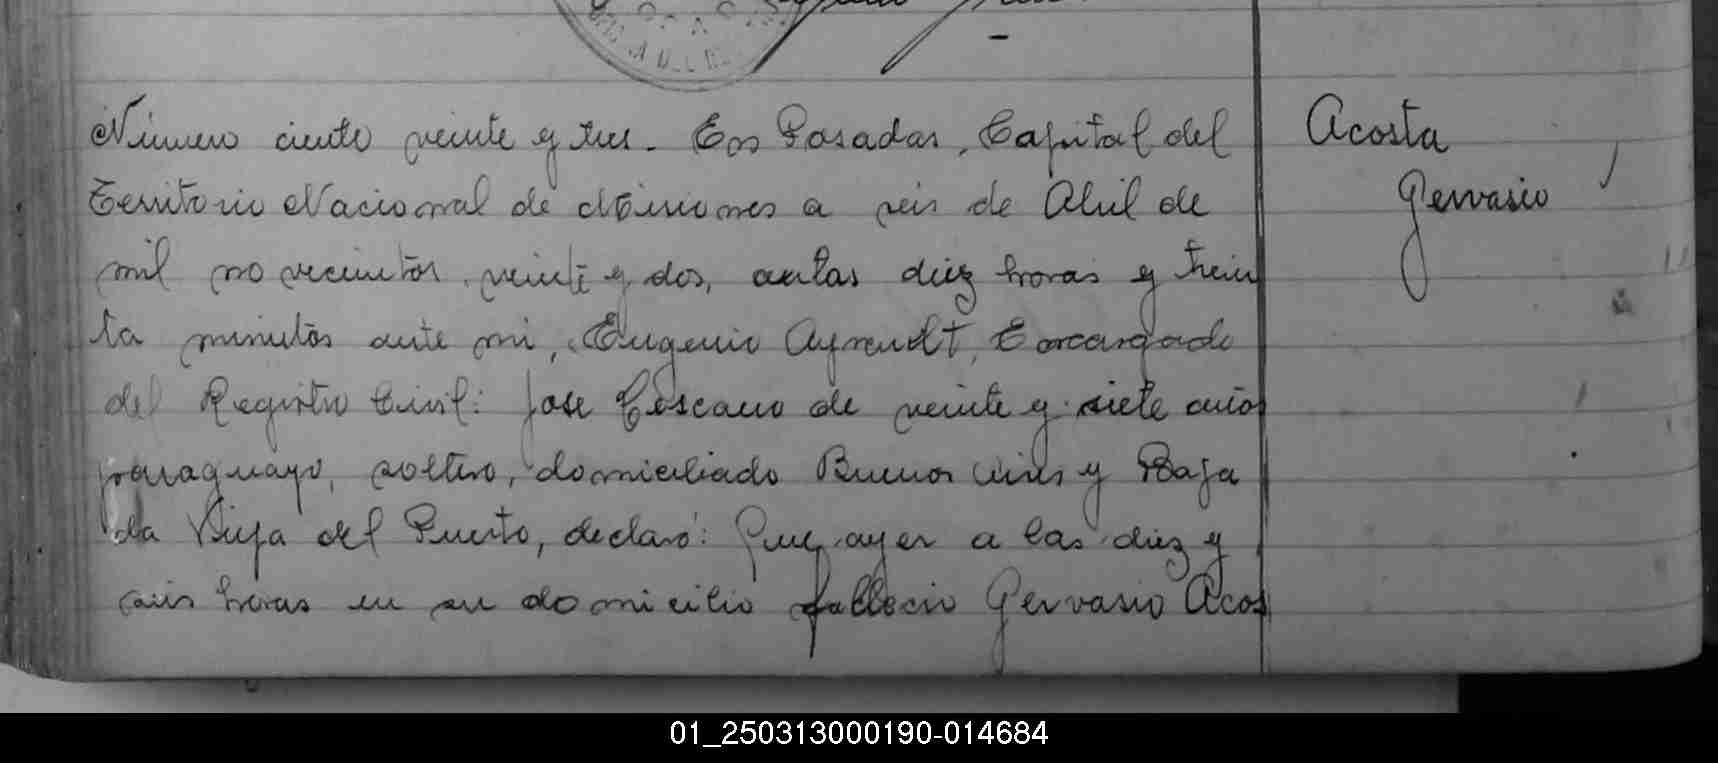 Número ciento veinte y tres. En Posadas, Capital del
Territorio Nacional de Misiones a seis de Abril de
mil novecientos veinte y dos, antas diez horas y trein
ta minutos ante mi, Eugenio Ayrault, Encargado
del Registro Civil: Jose Toscano de veinte y siete años
paraguayo, soltero, domiciliado Buenos Aires y Baja
da Vieja del Puerto, declaró: Que ayer a las diez y
seis horas en su domicilio fallecio Gervasio Acos
Acosta
Gervasio
01_250313000190-014684